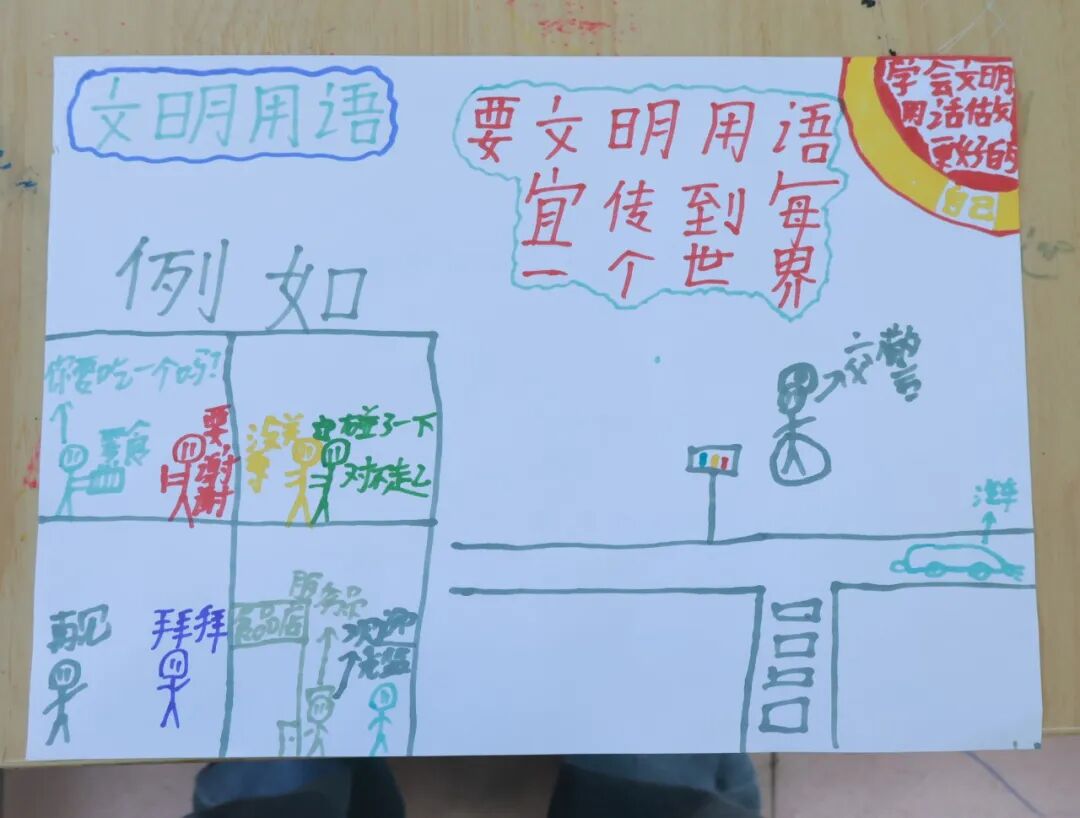 文明用语
要文明用语
宜传到每
一个世界
学会文明
用话做
更好的
自己
例如
你要吃一个吗?
零食
要,谢谢
没关
碰了一下
对不起
再见
拜拜
服务员
食品店
欢迎
交警
汽车